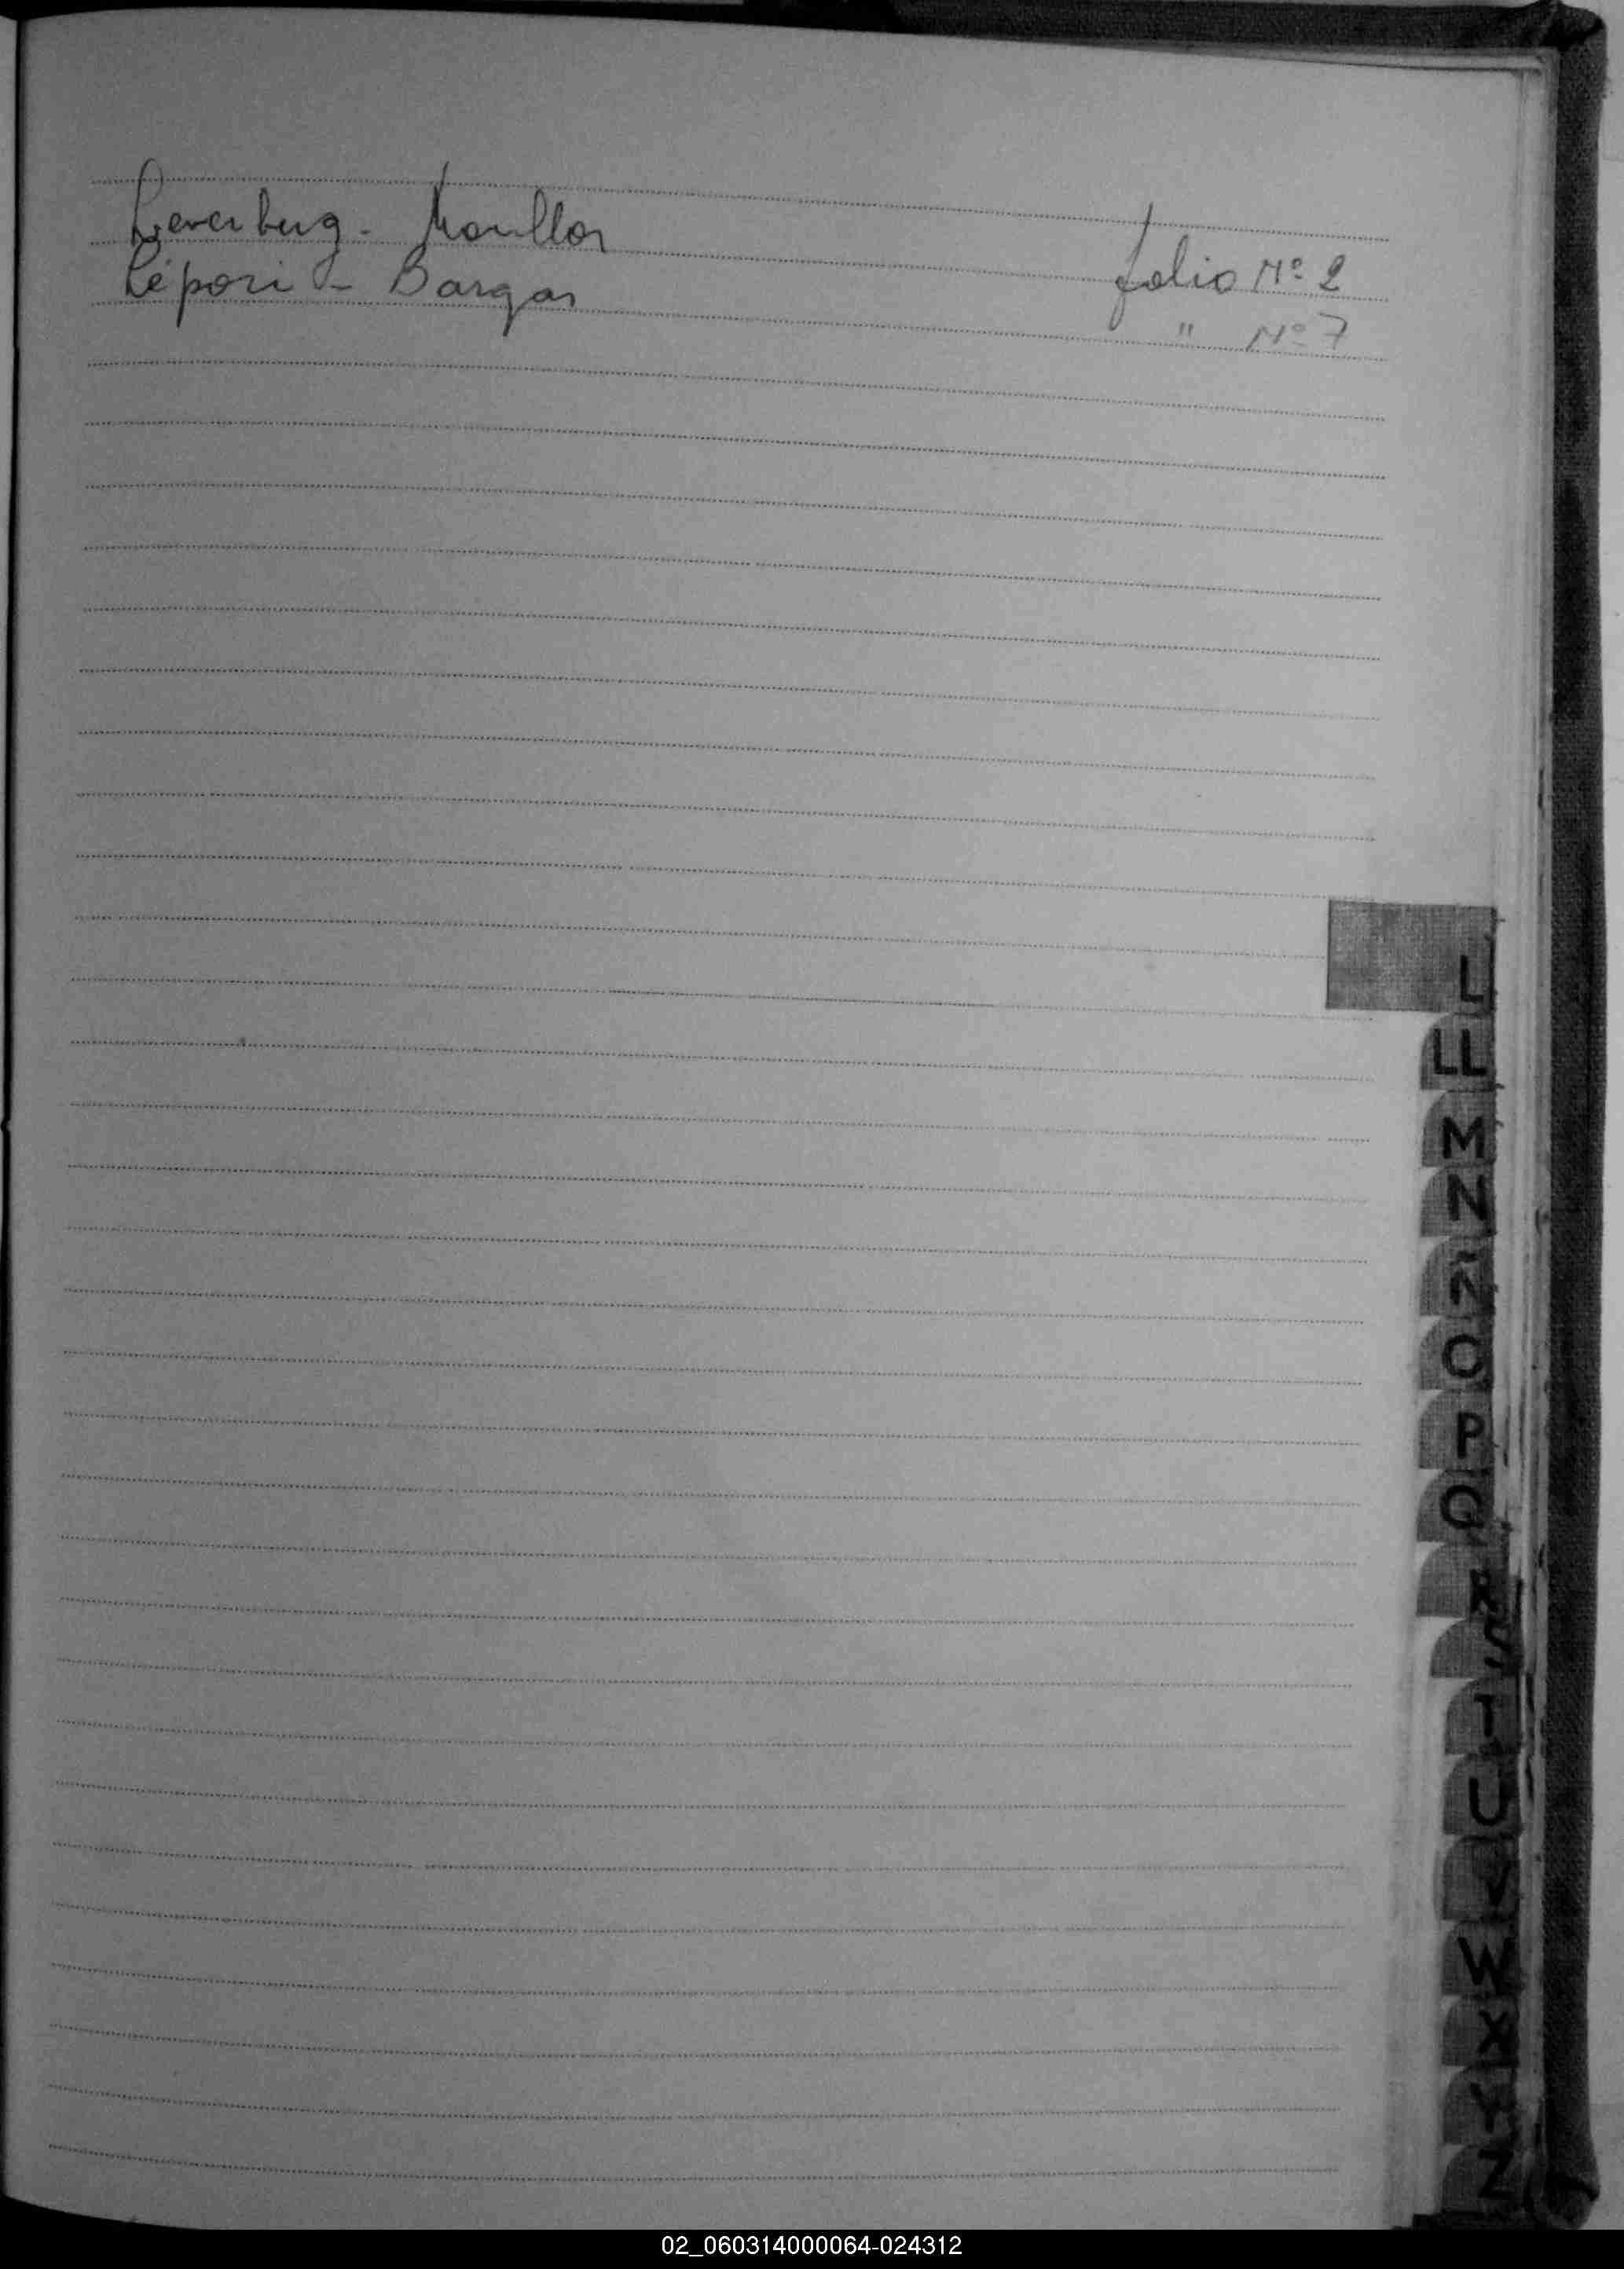 Leverberg - Moullor folio Nº 2
Lépori - Bargas " Nº 7
L
LL
M
N
Ñ
O
P
Q
R
S
T
U
V
W
X
Y
Z
02_060314000064-024312